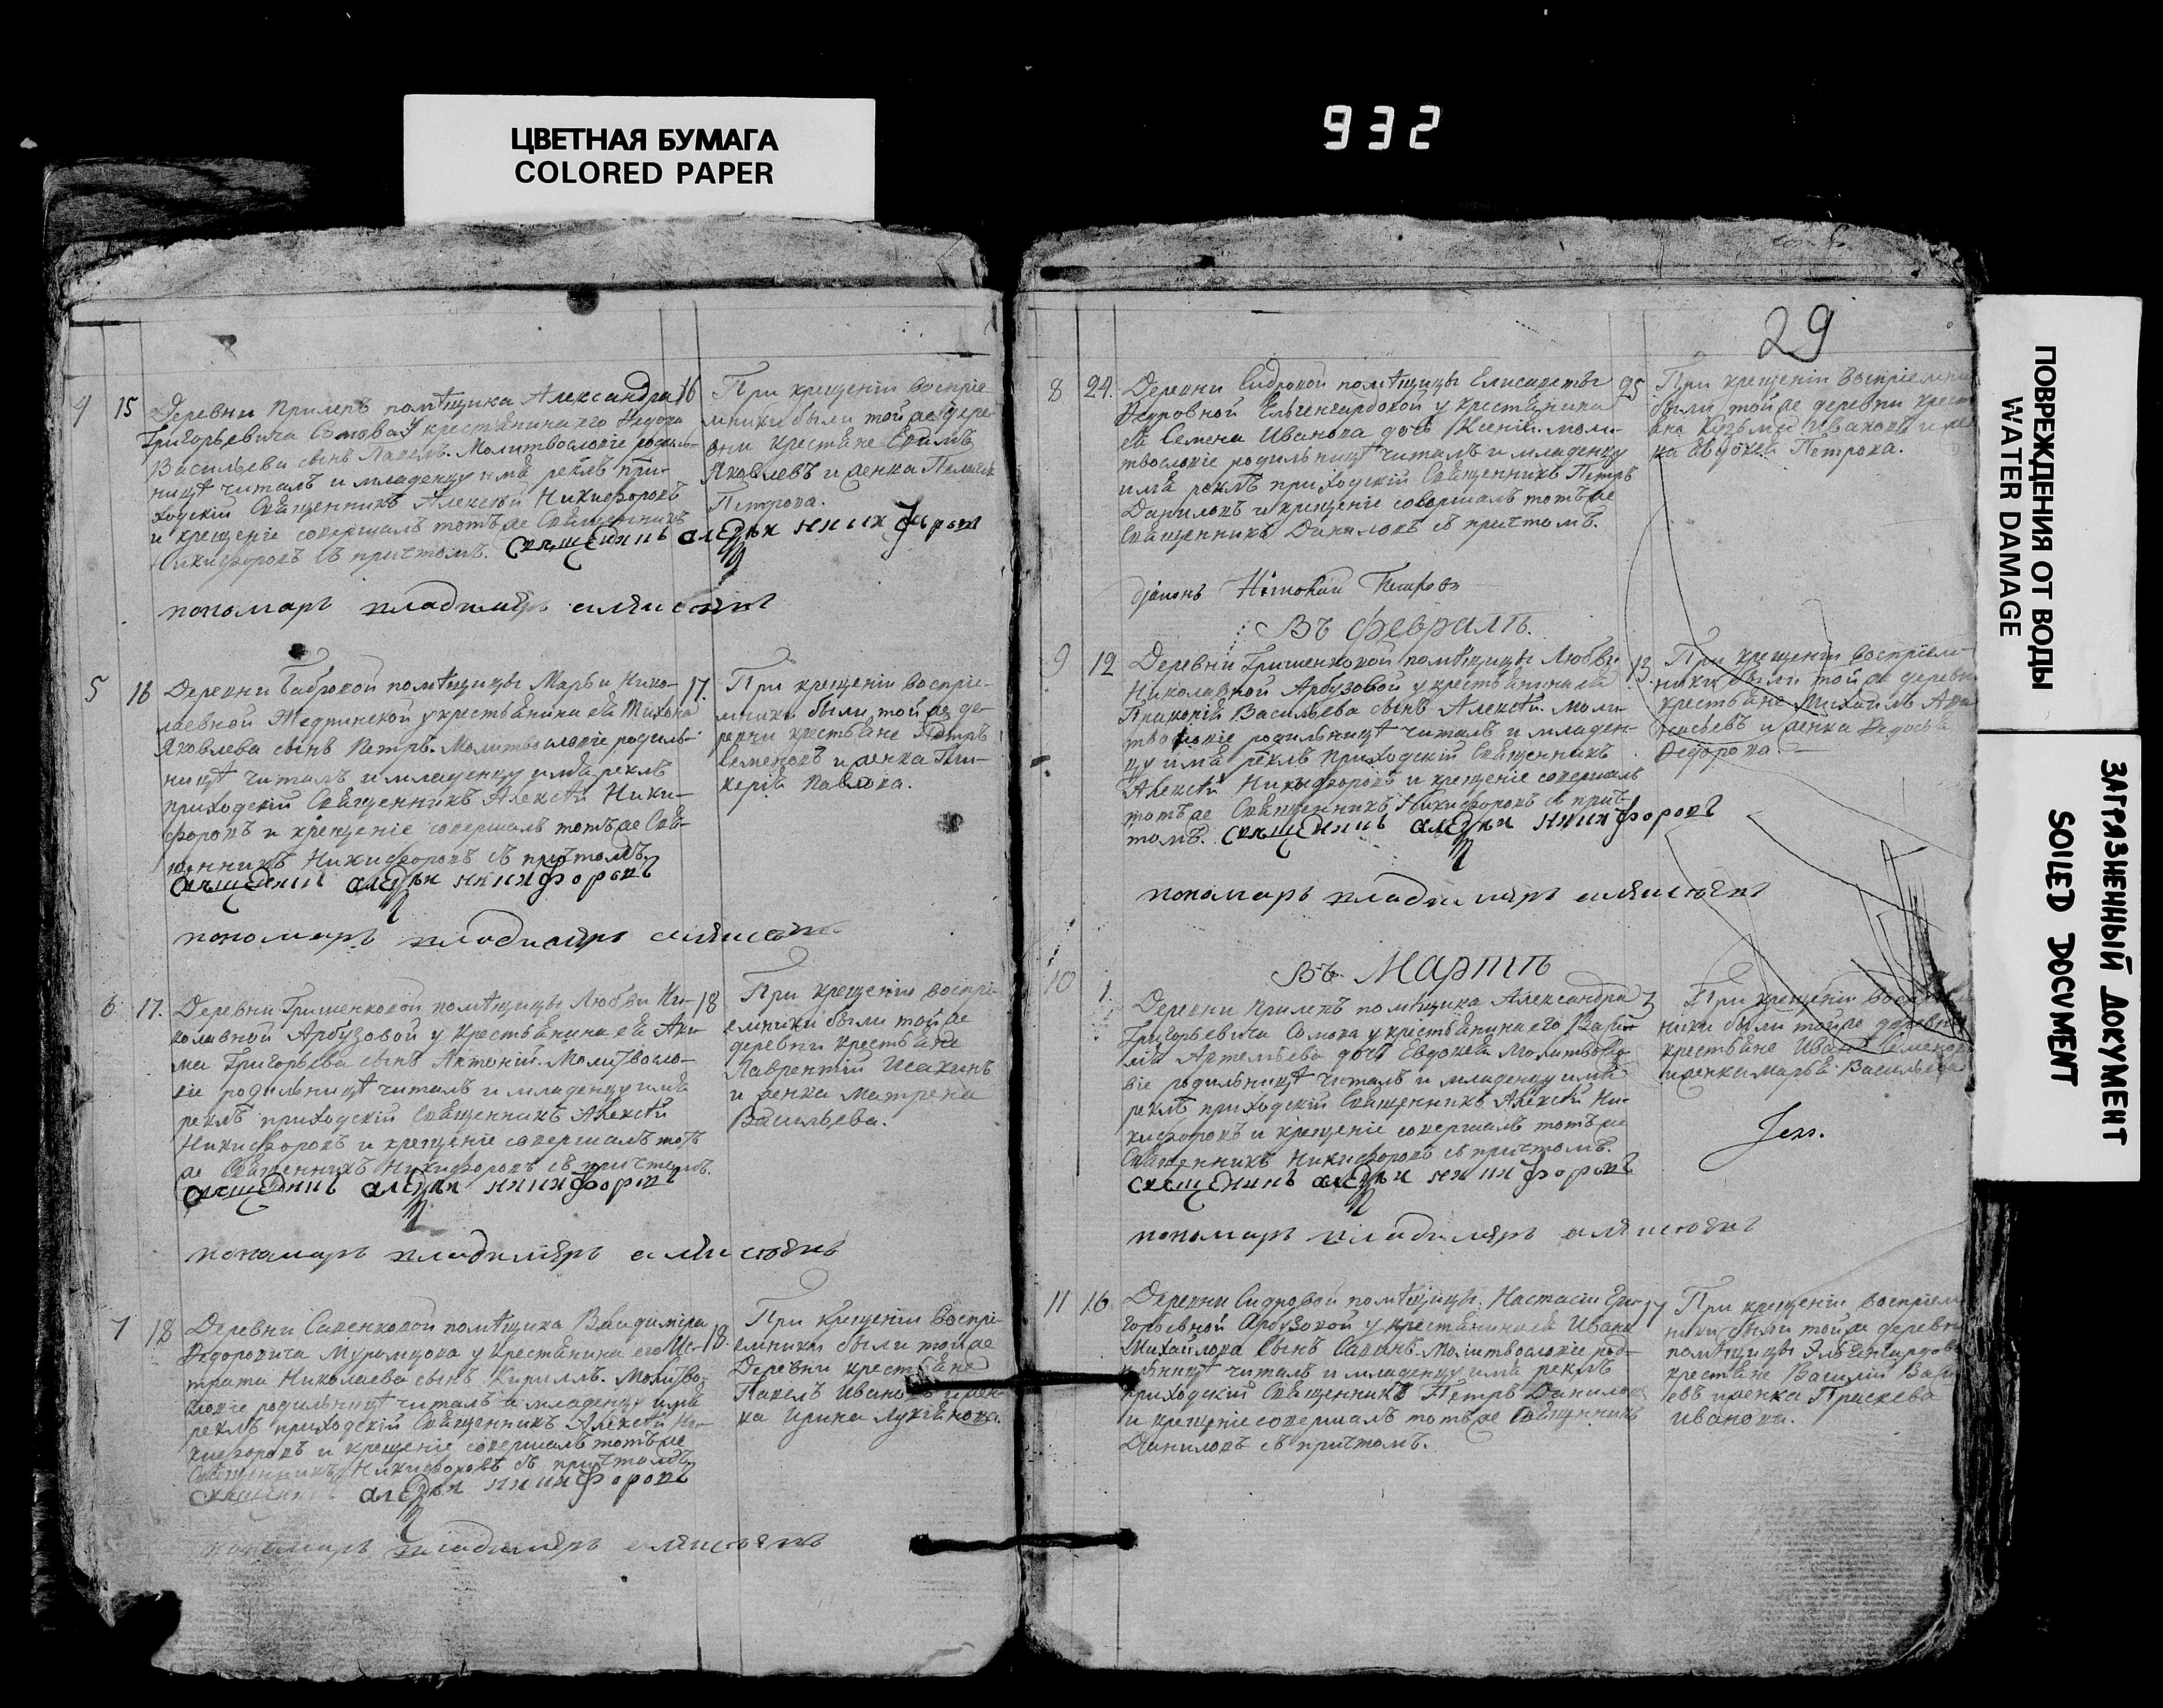 ЦВЕТНАЯ БУМАГА
COLORED PAPER
932
4 15 Деревни Прилепъ помѣщика Александра
Григорьевича Сомова у крестьянина его Федора
Васильева сынъ Павелъ. Молитвословіе родиль-
ницѣ читалъ и младенцу имя реклъ при-
ходскій Священникъ Алексѣй Никифоровъ
и крещеніе совершалъ тотъ же Священникъ
Никифоровъ съ причтомъ. священникъ алексѣи никифоровъ
16 При крещеніи воспріе-
мники были той же дере-
вни крестьяне Ефимъ
Яковлевъ и женка Пелагея
Петрова.
пономарь владимиръ
5 16 Деревни Бобровой помѣщицы Марьи Нико-
лаевной Жедринской у крестьянина ея Тихона
Яковлева сынъ Петръ. Молитвословіе родиль-
ницѣ читалъ и младенцу имя реклъ
приходскій Священникъ Алексѣй Ники-
форовъ и крещеніе совершалъ тотъ же Свя-
щенникъ Никифоровъ съ причтомъ.
священникъ алексѣи никифоровъ
17. При крещеніи воспріе-
мники были той же де-
ревни крестьяне Петръ
Семеновъ и женка Гли-
керія Павлова.
пономарь владимиръ
6 17. Деревни Гришенковой помѣщицы Любви Ни-
колавной Арбузовой у крестьянина ея Аки-
ма Григорьева сынъ Антоній. Молитвосло-
віе родильницѣ читалъ и младенцу имя
реклъ приходскій Священникъ Алексѣй
Никифоровъ и крещеніе совершалъ тотъ
же Священникъ Никифоровъ съ причтомъ.
священникъ алексѣи никифоровъ
18 При крещеніи воспрі-
емники были той же
деревни крестьяне
Лаврентій Исакинъ
и женка Матрена
Васильева.
пономарь владимиръ
7 18 Деревни Савенковой помѣщика Владимира
Федоровича Муромцова у крестьянина его Ис-
трата Николаева сынъ Кириллъ. Молитво-
словіе родильницѣ читалъ и младенцу имя
реклъ приходскій Священникъ Алексѣй Ни-
кифоровъ и крещеніе совершалъ тотъ же
Священникъ Никифоровъ съ причтомъ
священникъ алексѣи никифоровъ
18. При крещеніи воспрі-
емники были той же
деревни крестьяне
Павелъ Ивановъ и жен-
ка Ирина Лукьянова.
пономарь владимиръ
29
8 24. Деревни Сидровой помѣщицы Елисаветы
Федровной Ельгенгардовой у крестьянина
ея Семена Иванова дочь Ксенія. моли-
твословіе родильницѣ читалъ и младенцу
имя реклъ приходскій Священникъ Петръ
Даниловъ и крещеніе совершалъ тотъ же
Священникъ Даниловъ съ причтомъ.
25. При крещеніи воспріемни
были той же деревни крест
яне Кузьма Ивановъ и жен
ка Евдокея Петрова.
Петровъ
Въ Февралѣ.
9 12 Деревни Гришенковой помѣщицы Любви
Николавной Арбузовой у крестьянина ея
Прикопія Васильева сынъ Алексѣй. Моли-
твословіе родильницѣ читалъ и младен-
цу имя реклъ приходскій Священникъ
Алексѣй Никифоровъ и крещеніе совершалъ
тотъ же Священникъ Никифоровъ съ прич-
томъ. священникъ алексѣи никифоровъ
13. При крещеніи воспріем-
ники были той же деревн
крестьяне Михаилъ
и женка Федосья
Федорова.
пономарь владимиръ
Въ Мартѣ
10 1 Деревни Прилепъ помѣщика Александра
Григорьевича Сомова у крестьянина его Васи-
лія Артемьева дочь Евдокея Молитвосло-
віе родильницѣ читалъ и младенцу имя
реклъ приходскій Священникъ Алексѣй Ни-
кифоровъ и крещеніе совершалъ тотъ же
Священникъ Никифоровъ съ причтомъ.
священникъ алексѣи никифоровъ
3 При крещеніи воспріем
ники были той же деревни
крестьяне Иванъ Семенов
и женка Марья Васильева
пономарь владимиръ
11 16 Деревни Сидровой помѣщицы Настасіи Гри-
горьевной Арбузовой у крестьянина ея Ивана
Михайлова сынъ Савинъ. Молитвословіе род-
ильницѣ читалъ и младенцу имя реклъ
приходскій Священникъ Петръ Даниловъ
и крещеніе совершалъ тотъ же Священникъ
Даниловъ съ причтомъ.
17 При крещеніи воспріем
ники были той же деревн
помѣщицы Эльгенгардов
крестьяне Василій Васи
евъ и женка Прискева
Иванова.
ПОВРЕЖДЕНИЯ ОТ ВОДЫ
WATER DAMAGE
ЗАГРЯЗНЕННЫЙ ДОКУМЕНТ
SOILED DOCUMENT